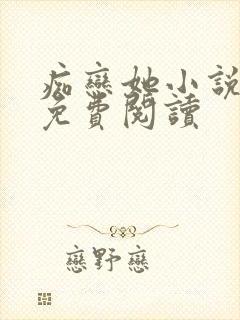 痴戀她小說
免費閱讀
戀野戀